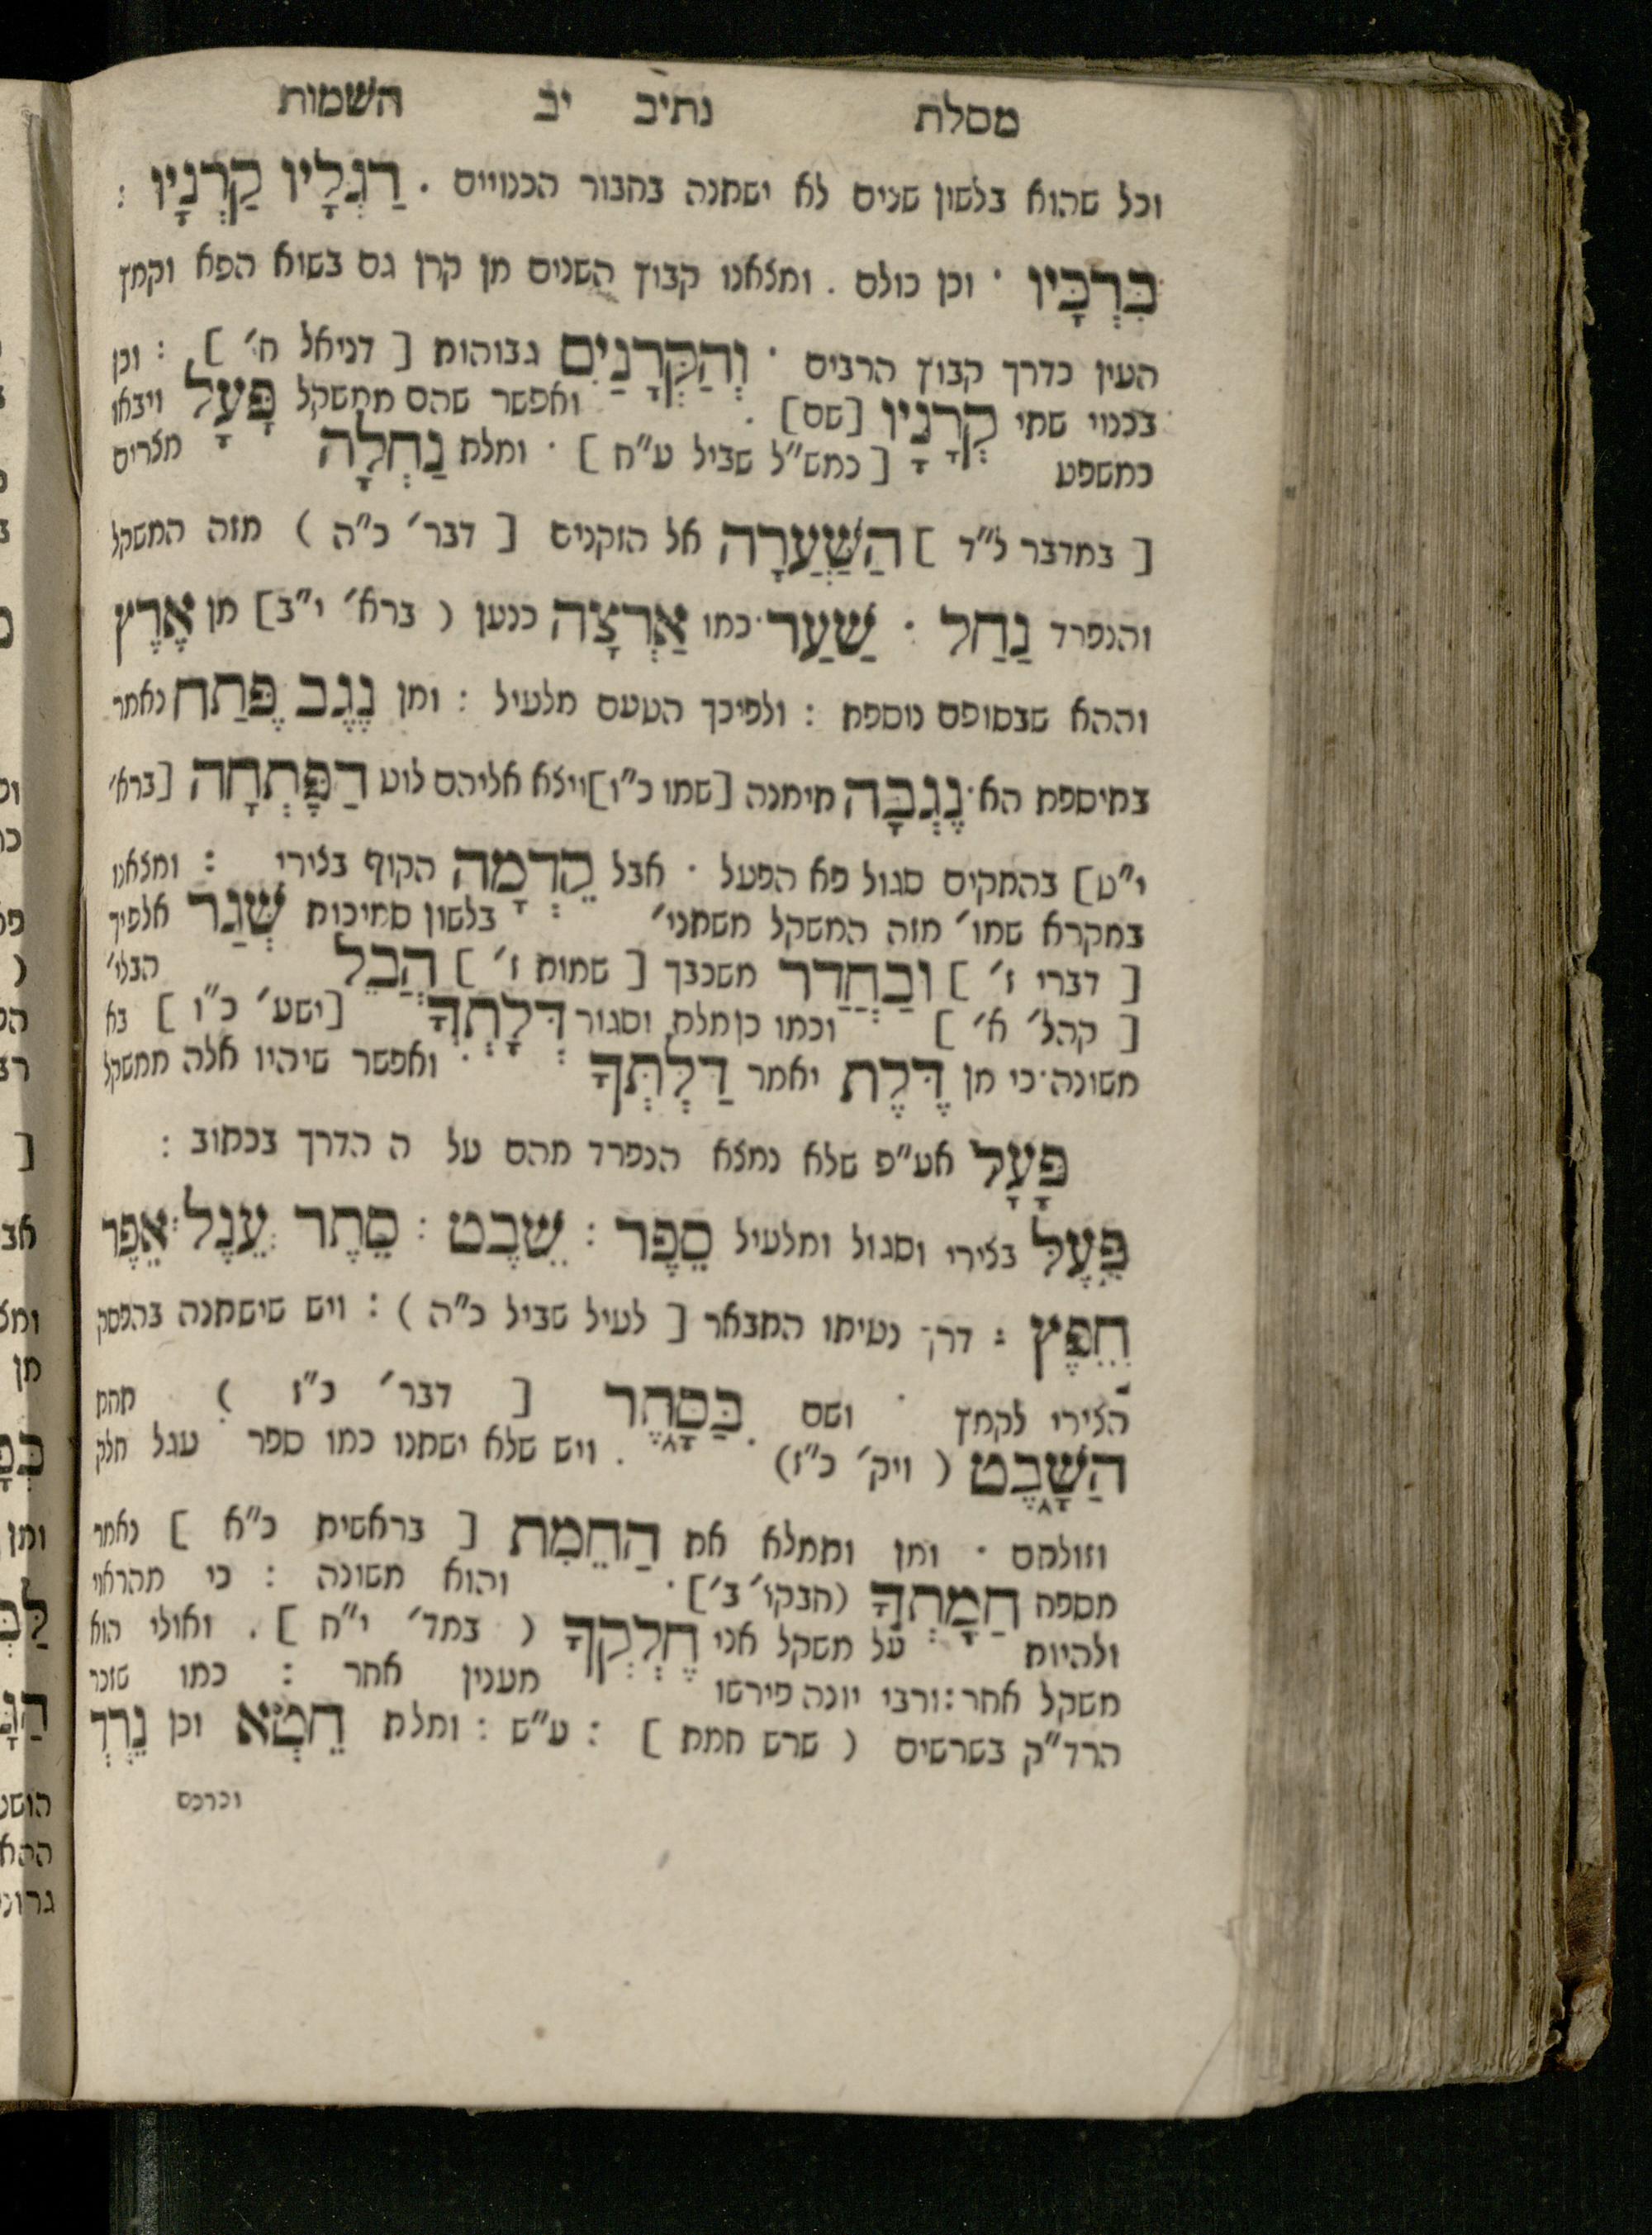 מסלת נתיב יב השמות
וכל שהוא בלשון שנים לא ישתנה בחבור הכנויים . רַגְלָיו קַרְנָיו :
בִּרְכָּיו · וכן כולם . ומצאנו קבוץ השנים מן קרן גם בשוא הפא וקמץ
העין כדרך קבוץ הרבים · וְהַקְּרָנַיִם גבוהות [ דניאל ח׳ ] : וכן
בכנוי שתי קְרָנָיו [שם] . ואפשר שהם ממשקל פָּעָל ויבאו
כמשפט [ כמש״ל שביל ע״ח ] · ומלת נַחְלָה מצרים
[ במדבר ל״ד ] הַשַּׁעֲרָה אל הזקנים [ דבר׳ כ״ה ) מזה המשקל
והנפרד נַחַל · שַׁעַר · כמו אַרְצָה כנען ( ברא׳ י״ב] מן אֶרֶץ
וההא שבסופם נוספת : ולפיכך הטעם מלעיל : ומן נֶגֶב פֶּתַח נאמר
בתוספת הא · נֶגְבָּה תימנה [שמו כ״ו] ויצא אליהם לוט הַפֶּתְחָה [ברא׳
י״ט] בהתקים סגול פא הפעל · אבל קֵדְמָה הקוף בצירי : ומצאנו
במקרא שמו׳ מזה המשקל משתני׳ בלשון סמיכות שְׁגַר אלפיך
[ דברי ז׳ ] וּבַחֲדַר משכבך [ שמות ז׳ ] הֲבֵל הבלי׳
[ קהל׳ א׳ ] וכמו כן מלת וסגור דְּלָתְךָ [ישע׳ כ״ו ] בא
משונה · כי מן דֶּלֶת יאמר דַּלְתְּךָ . ואפשר שיהיו אלה ממשקל
פָּעָל אע״פ שלא נמצא הנפרד מהם על ה הדרך בכתוב :
פֵּעֶל בצירי וסגול ומלעיל סֵפֶר : שֵׁבֶט : סֵתֶר : עֵגֶל : אֵפֶר
חֵפֶץ : דרך נטיתו התבאר [ לעיל שביל כ״ה ) : ויש שישתנה בהפסק
הצירי לקמץ · ושם בַּסָּתֶר [ דבר׳ כ״ז ) תחת
הַשָּׁבֶט ( ויק׳ כ״ז) . ויש שלא ישתנו כמו ספר עגל חלק
וזולתם · ומן ותמלא את הַחֵמֶת [ בראשית כ״א ] נאמר
מספח חַמָתְךָ (חבקו׳ ב׳] · והוא משונה : כי מהראוי
ולהיות על משקל אני חֶלְקְךָ ( במד׳ י״ח ] . ואולי הוא
משקל אחר : ורבי יונה פירשו מענין אחר : כמו שזכר
הרד״ק בשרשים ( שרש חמת ] : ע״ש : ומלת חֵטְא וכן נֵרְדְּ
וכרכם